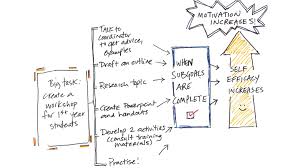 Big task:
create a
workshop
for 1st year
students
Talk to
coordinator
to get advice,
examples
Draft an outline
Research topic
Create Powerpoint
and handouts
Develop 2 activities
(consult training
materials)
Practise!
WHEN
SUBGOALS
ARE
COMPLETE
SELF
EFFICACY
INCREASES
MOTIVATION
INCREASES!